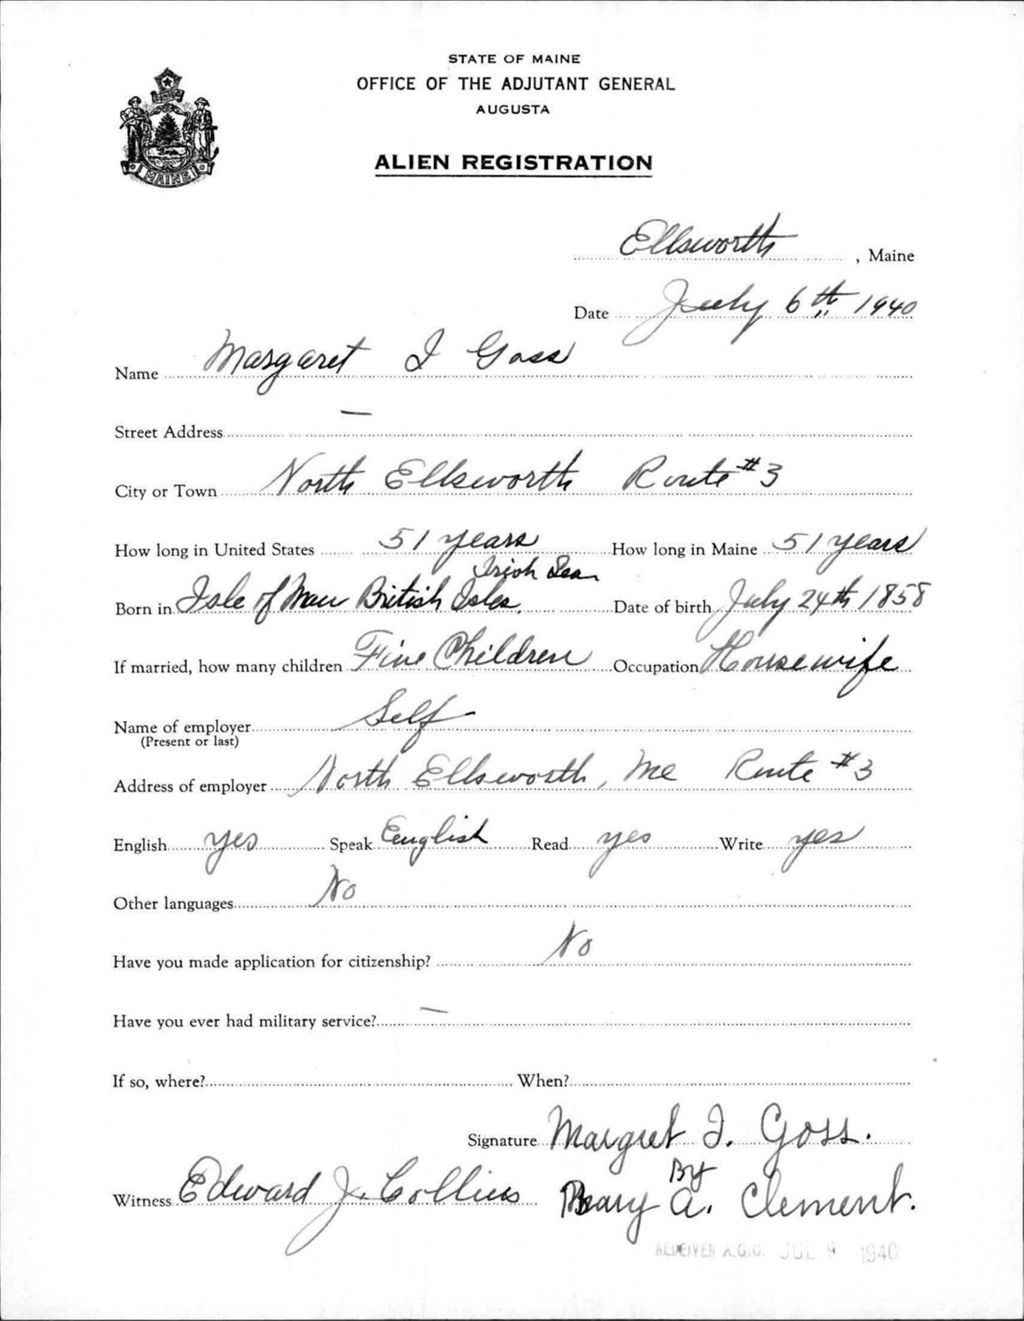 STATE OF MAINE
OFFICE OF THE ADJUTANT GENERAL
AUGUSTA
ALIEN REGISTRATION
MAINE
Ellsworth, Maine
Date July 6th 1940
Name Margaret I Goss
Street Address —
City or Town North Ellsworth Route #3
How long in United States 51 years How long in Maine 51 years
Irish Sea
Born in Isle of Man British Isles, Date of birth July 24th 1858
If married, how many children Five Children Occupation Housewife
Name of employer Self
(Present or last)
Address of employer North Ellsworth, Me Route #3
English yes Speak English Read yes Write yes
Other languages No
Have you made application for citizenship? No
Have you ever had military service? —
If so, where? When?
Signature Margret I. Goss.
By
Witness Edward J. Collins Mary A. Clement.
RECEIVED A.G.O. JUL 9 1940